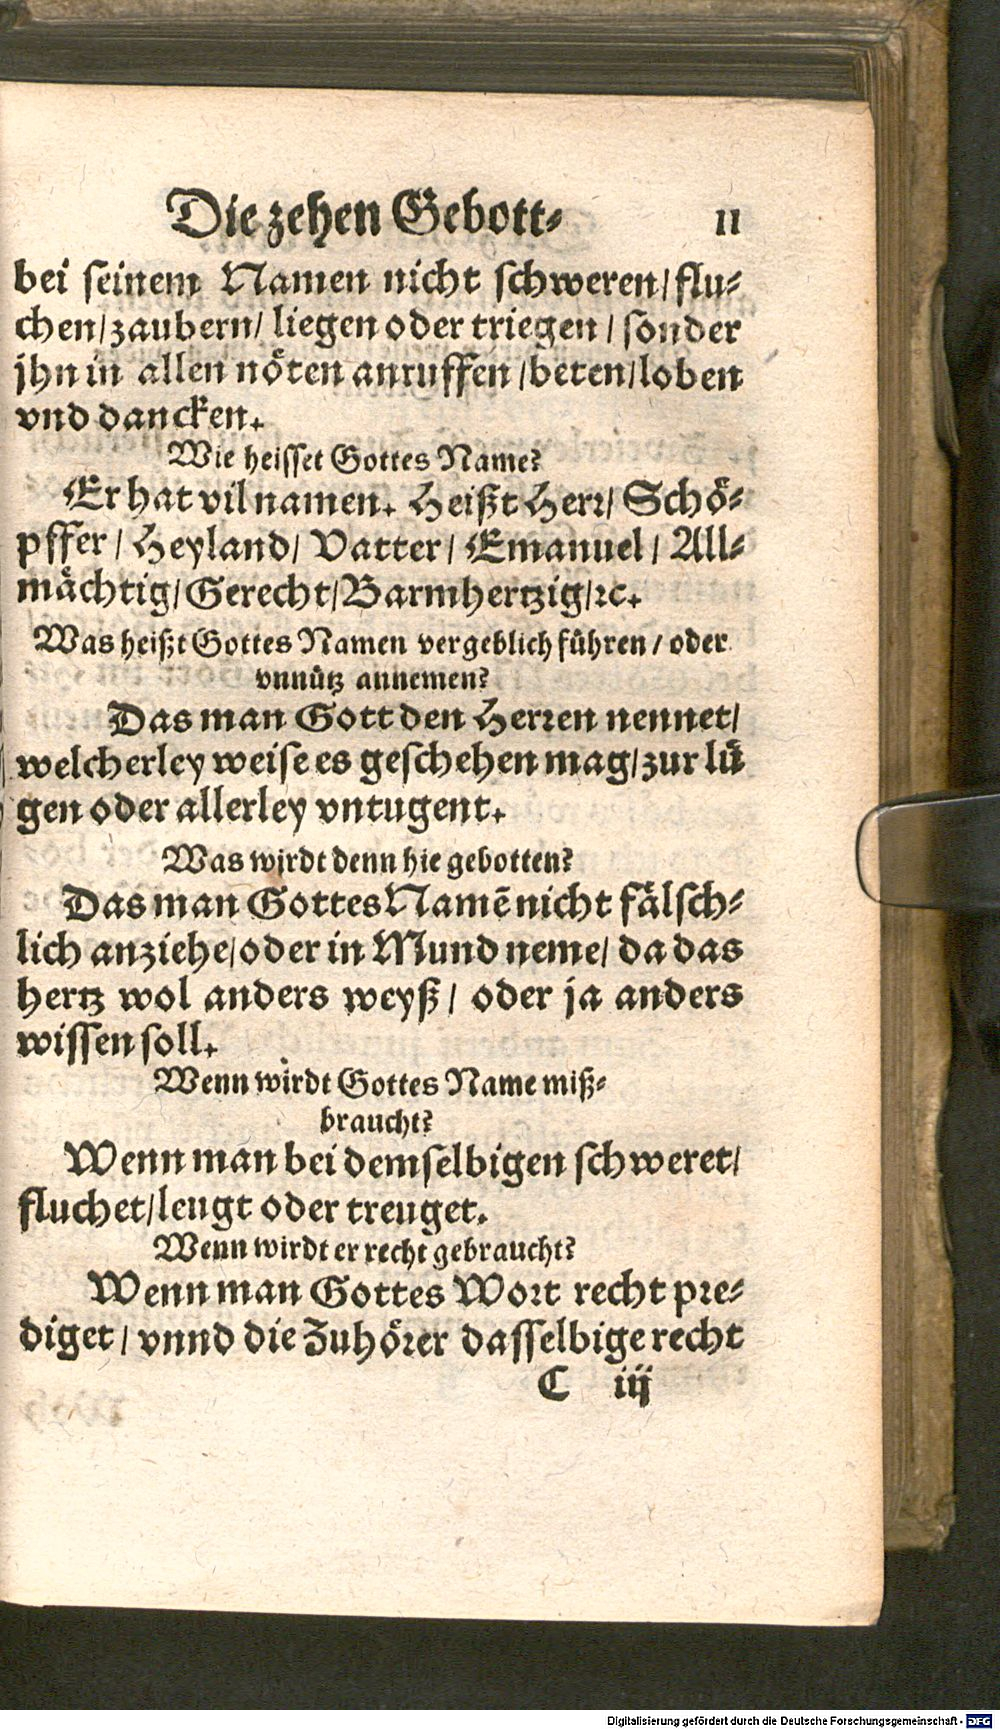 Die zehen Gebott⸗ 11
bei seinem Namen nicht schweren/flu⸗
chen/zaubern/liegen oder triegen/sonder
jhn in allen nöten anruffen/beten/loben
vnd dancken.
Wie heisset Gottes Name?
Er hat vil namen. Heißt Herr/Schö⸗
pffer/Heyland/Vatter/Emanuel/All⸗
mächtig/Gerecht/Barmhertzig/ꝛc.
Was heißt Gottes Namen vergeblich führen/oder
vnnütz annemen?
Das man Gott den Herren nennet/
welcherley weise es geschehen mag/zur lü
gen oder allerley vntugent.
Was wirdt denn hie gebotten?
Das man Gottes Namē nicht fälsch⸗
lich anziehe/oder in Mund neme/da das
hertz wol anders weyß/oder ja anders
wissen soll.
Wenn wirdt Gottes Name miß⸗
braucht?
Wenn man bei demselbigen schweret/
fluchet/leugt oder treuget.
Wenn wirdt er recht gebraucht?
Wenn man Gottes Wort recht pre⸗
diget/vnnd die Zuhörer dasselbige recht
C iij
Digitalisierung gefördert durch die Deutsche Forschungsgemeinschaft - DFG